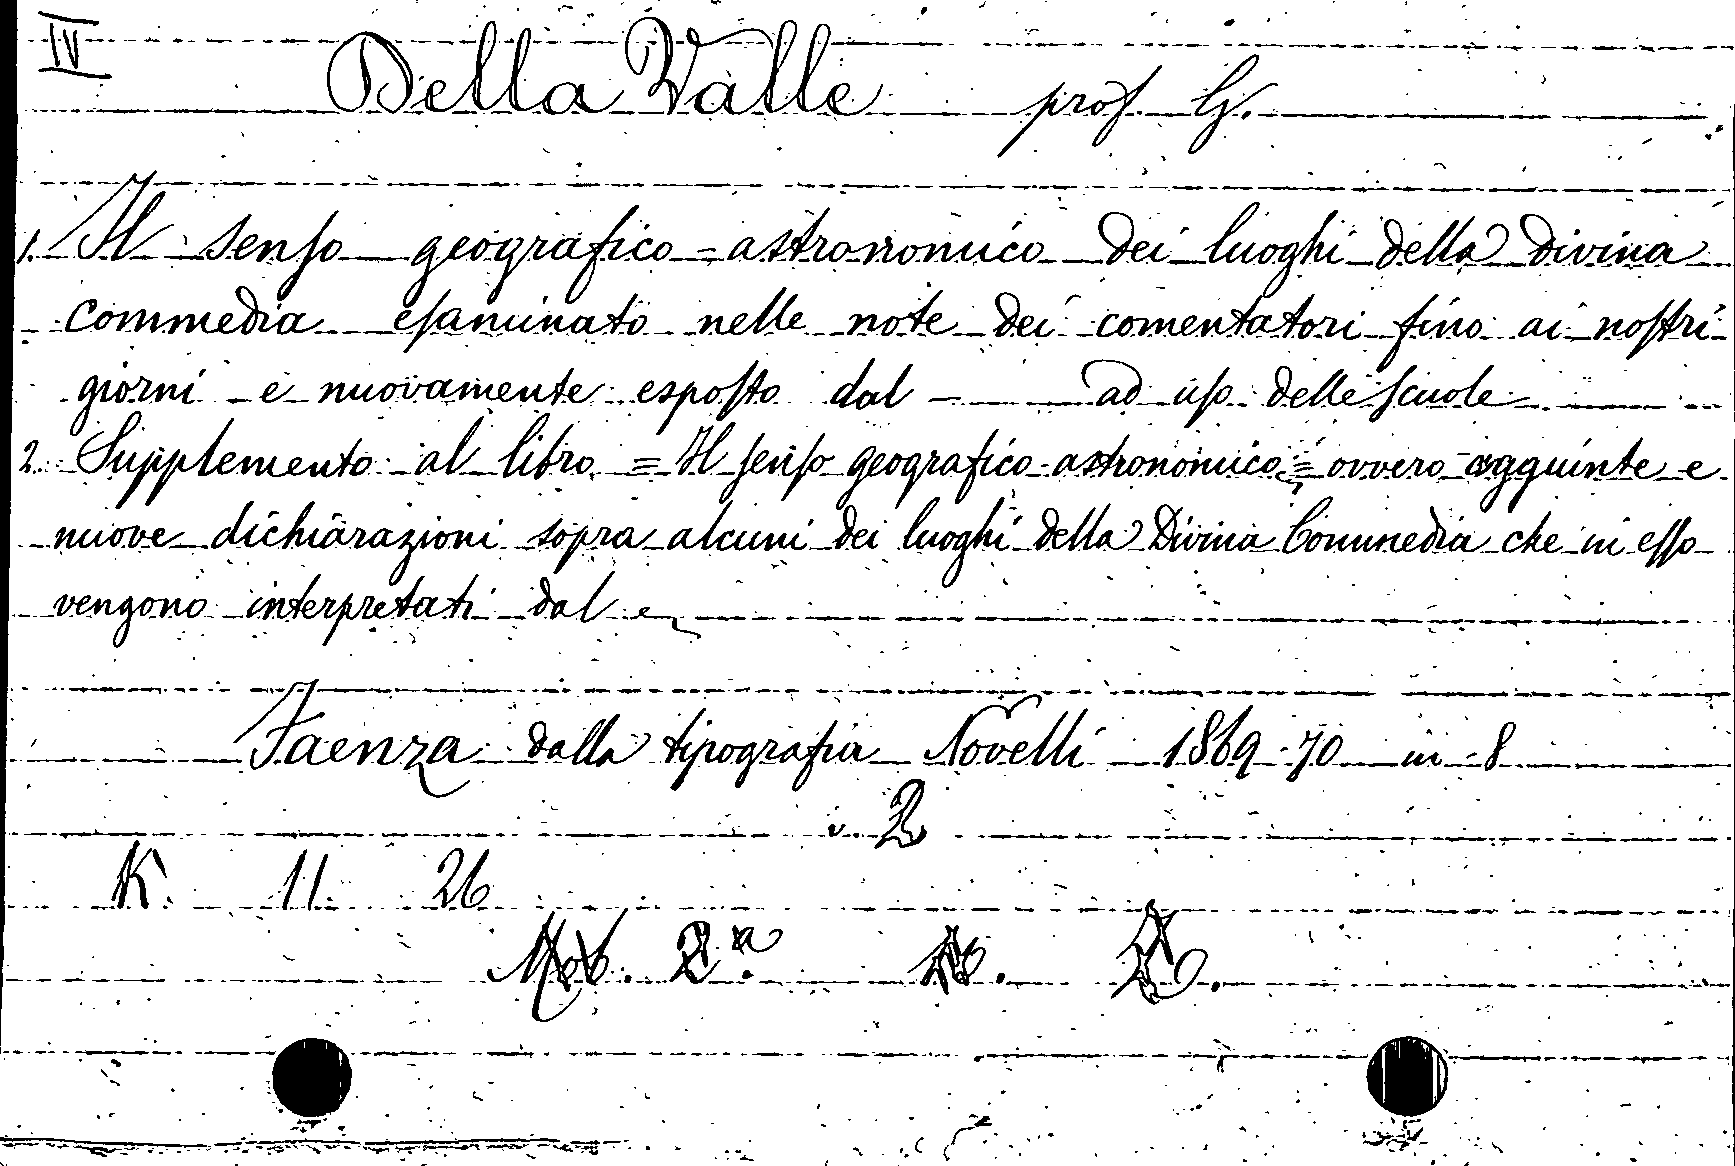 IV
Della Valle prof. G.
1. Il senso geografico=astronomico dei luoghi della divina
commedia esaminato nelle note dei comentatori fino ai nostri
giorni e nuovamente esposto dal — ad uso delle scuole
2. Supplemento al libro = Il senso geografico-astronomico = ovvero aggiunte e
nuove dichiarazioni sopra alcuni dei luoghi della Divina Commedia che in esso
vengono interpretati dal
Faenza dalla tipografia Novelli 1869-70 in 8
v. 2
K. 11 26